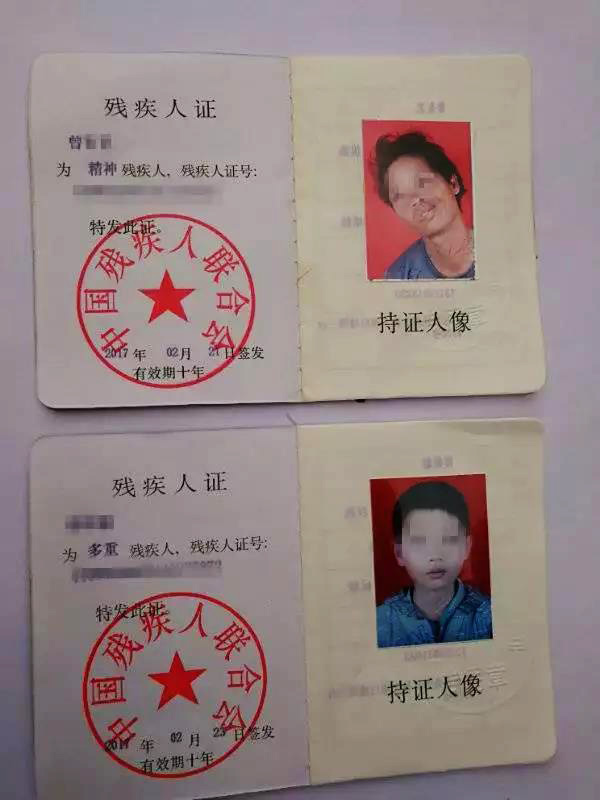 残疾人证
曾
为 精神 残疾人、残疾人证号:
特发此证。
中国残疾人联合会
2017 年 02 月 21 日签发
有效期十年
持证人像
残疾人证
为 多重 残疾人、残疾人证号:
特发此证。
中国残疾人联合会
2017 年 02 月 23 日签发
有效期十年
持证人像